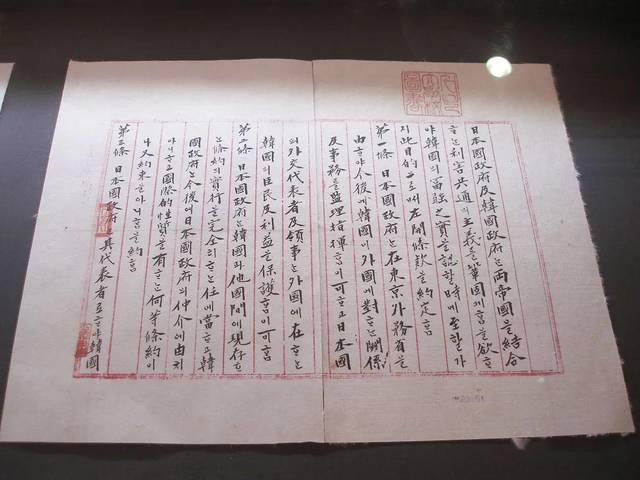 日本國政府及韓國政府ᄂᆞᆫ兩帝國을結合
ᄒᆞᄂᆞᆫ利害共通의主義를鞏固케ᄒᆞᆷ을欲ᄒᆞ
야韓國의富强之實을認ᄒᆞᆯ時에至ᄒᆞᆯ가
지此目的으로ᄡᅥ左開條款을約定ᄒᆞᆷ
第一條 日本國政府ᄂᆞᆫ在東京外務省을
由ᄒᆞ야今後에韓國이外國에對ᄒᆞᄂᆞᆫ關係
及事務를監理指揮ᄒᆞᆷ이可ᄒᆞ고日本國
의外交代表者及領事ᄂᆞᆫ外國에在ᄒᆞᄂᆞᆫ
韓國의臣民及利益을保護ᄒᆞᆷ이可ᄒᆞᆷ
第二條 日本國政府ᄂᆞᆫ韓國과他國間에現存ᄒᆞ
ᄂᆞᆫ條約의實行을完全히ᄒᆞᄂᆞᆫ任에當ᄒᆞ고韓
國政府ᄂᆞᆫ今後에日本國政府의仲介에由치
아니ᄒᆞ고國際的性質을有ᄒᆞᄂᆞᆫ何等條約이
나又約束을아니ᄒᆞᆷ을約ᄒᆞᆷ
第三條 日本國政府ᄂᆞᆫ其代表者로ᄒᆞ야韓國